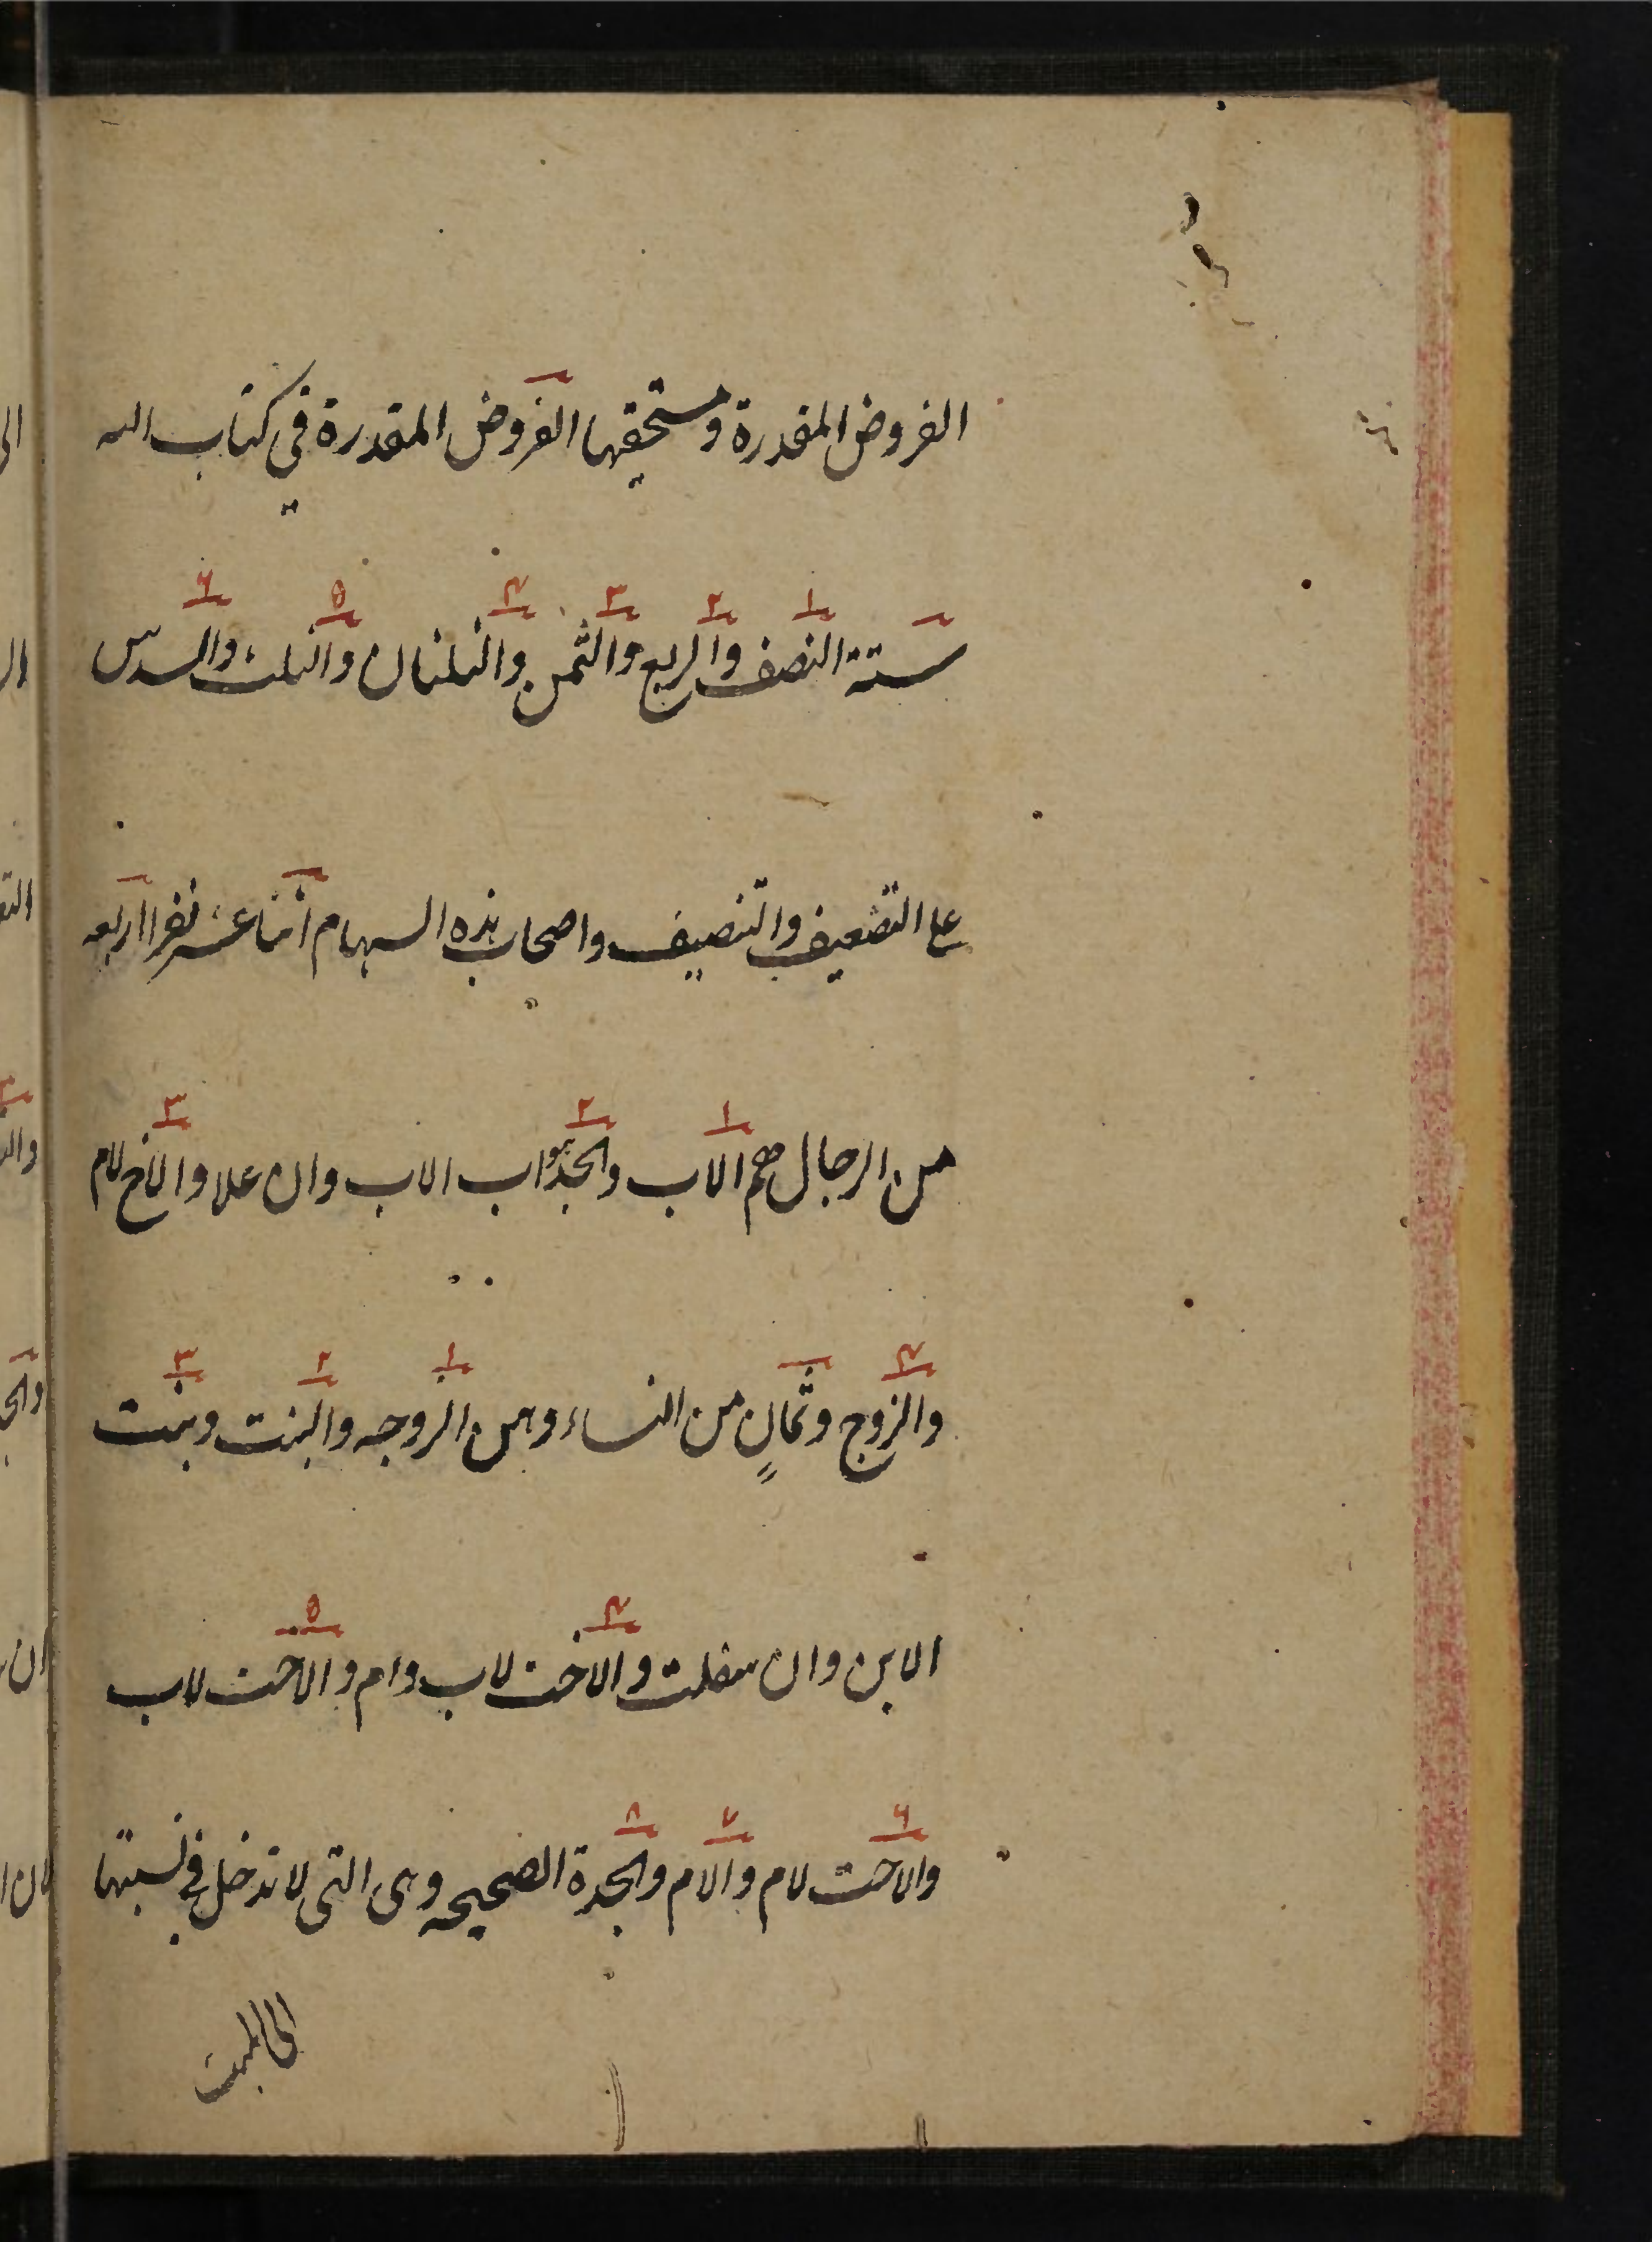 الفروض المقدرة ومستحقيها الفروض المقدرة في كتاب الله
١ ٢ ٣ ٤ ٥ ٦
ستة النصف والربع والثمن والثلثان والثلث والسدس
على التضعيف والتنصيف واصحاب هذه السهام اثنا عشر نفرا اربعه
١ ٢ ٣
من الرجال هم الاب والجد هو اب الاب وان علا والاخ لام
٤ ١ ٢ ٣
والزوج وثمانٍ من النساء وهن الزوجه والبنت وبنت
٤ ٥
الابن وان سفلت والاخت لاب وام والاخت لاب
٦ ٧ ٨
والاخت لام والام والجدة الصحيحه وهى التى لا تدخل في نسبتها
الى الميت